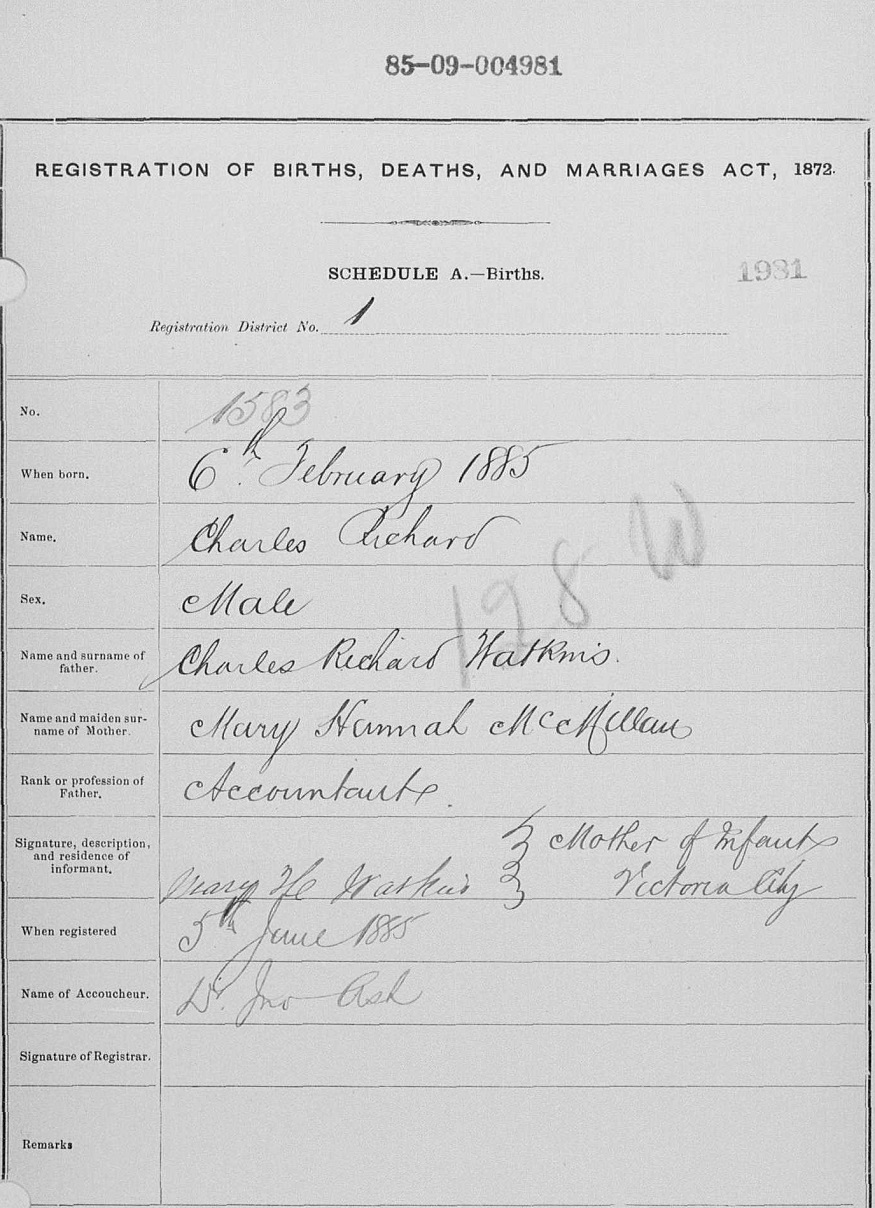 85-09-004981
REGISTRATION OF BIRTHS, DEATHS, AND MARRIAGES ACT, 1872.
SCHEDULE A.—Births.
1981
Registration District No. 1
No. 1583
When born. 6th. February 1885
Name. Charles Richard
Sex. Male
Name and surname of
father. Charles Richard Watkins.
Name and maiden sur-
name of Mother. Mary Hannah McMillan
Rank or profession of
Father. Accountant.
Signature, description,
and residence of
informant. Mary H Watkins } Mother of Infant
Victoria City
When registered 5th June 1885
Name of Accoucheur. Dr. Jno Ash
Signature of Registrar.
Remarks
128 W